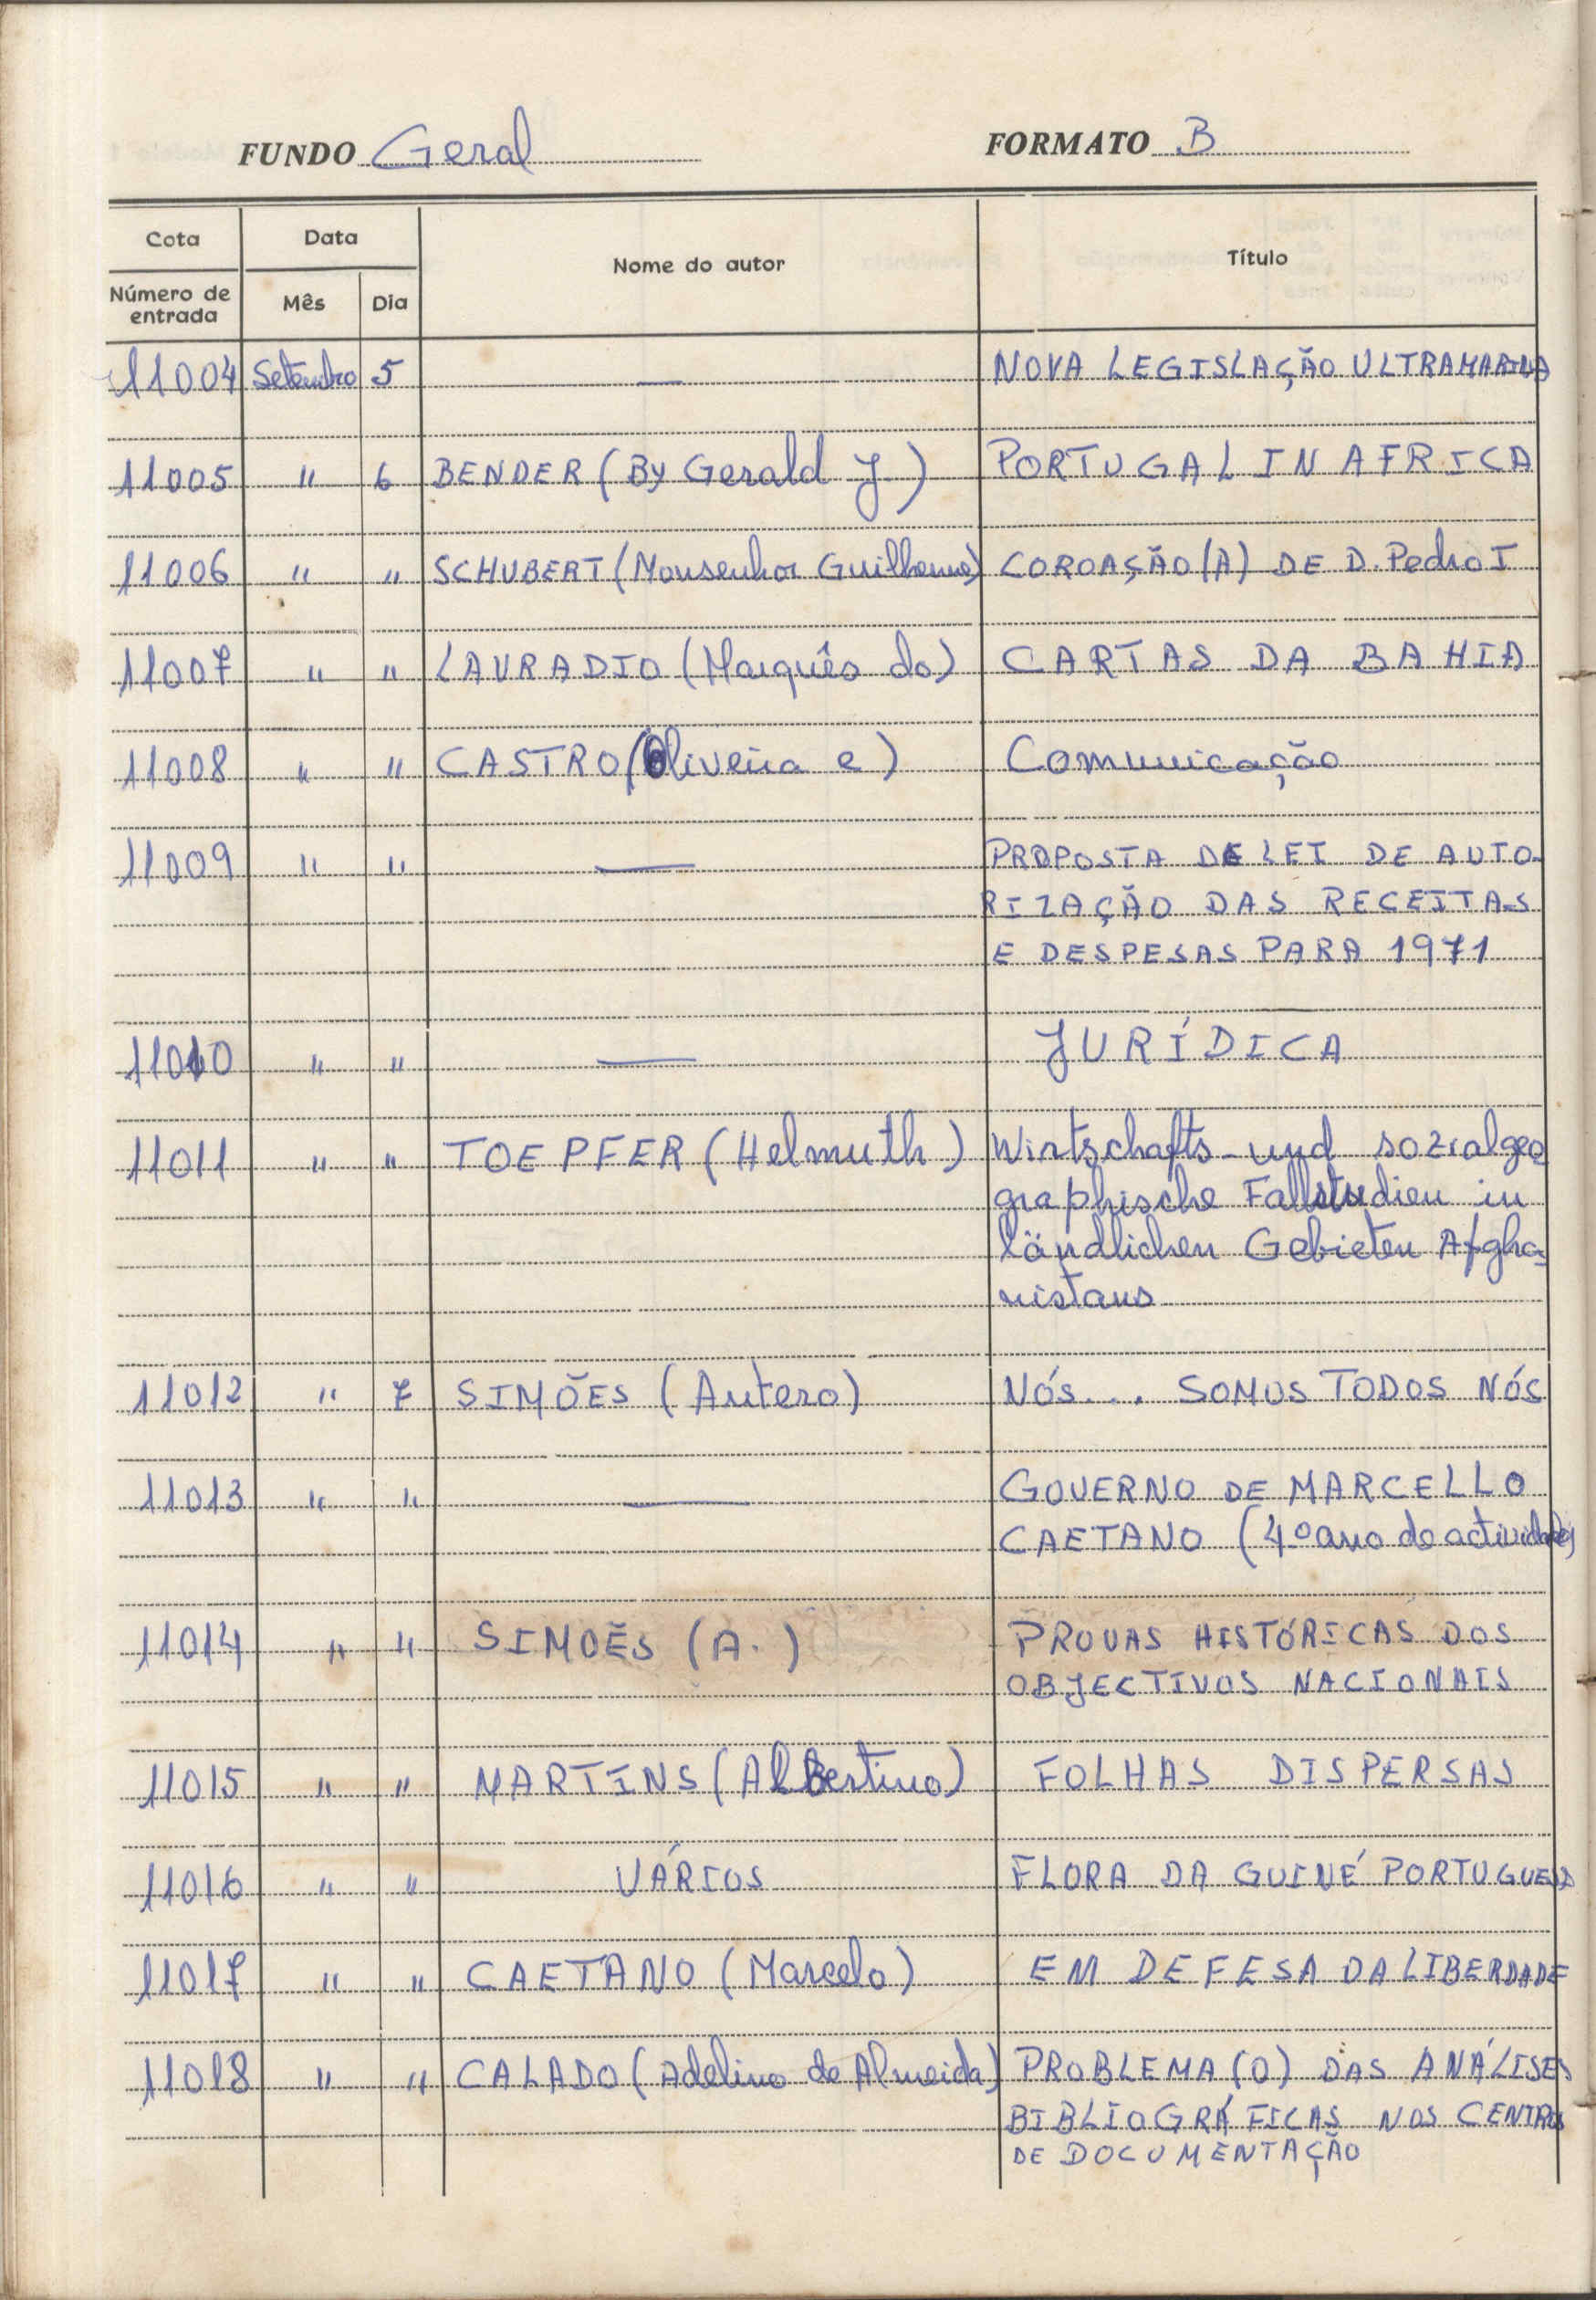 FUNDO Geral FORMATO B
Cota Data Nome do autor Título
Número de entrada Mês Dia
11004 Setembro 5 — NOVA LEGISLAÇÃO ULTRAMARINA
11005 " 6 BENDER (By Gerald J) PORTUGAL IN AFRICA
11006 " " SCHUBERT (Monsenhor Guilherme) COROAÇÃO (A) DE D. Pedro I
11007 " " LAVRADIO (Marquês do) CARTAS DA BAHIA
11008 " " CASTRO (Oliveira e) Comunicação
11009 " " — PROPOSTA DE LEI DE AUTO-
RIZAÇÃO DAS RECEITAS
E DESPESAS PARA 1971
11010 " " — JURÍDICA
11011 " " TOEPFER (Helmuth) Wirtschafts-und sozialgeo
graphische Fallstudien in
ländlichen Gebieten Afgha-
nistans
11012 " 7 SIMÕES (Antero) NÓS... SOMOS TODOS NÓS
11013 " " — GOVERNO DE MARCELLO
CAETANO (4º ano de actividade)
11014 " " SIMOẼS (A.) PROVAS HISTÓRICAS DOS
OBJECTIVOS NACIONAIS
11015 " " MARTINS (AlBertino) FOLHAS DISPERSAS
11016 " " VÁRIOS FLORA DA GUINÉ PORTUGUESA
11017 " " CAETANO (Marcelo) EM DEFESA DA LIBERDADE
11018 " " CALADO (Adelino de Almeida) PROBLEMA (O) DAS ANÁLISES
BIBLIOGRÁFICAS NOS CENTROS
DE DOCUMENTAÇÃO